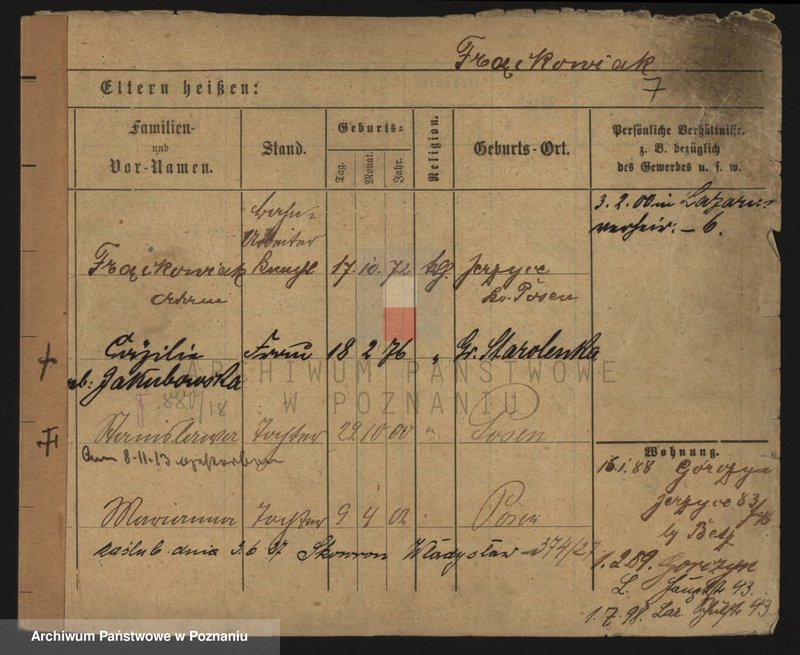 Frąckowiak
7
Eltern heißen:
Familien-
und
Vor-Namen.
Stand.
Geburts-
Tag.
Monat.
Jahr.
Religion.
Geburts-Ort.
Persönliche Verhältnisse,
z. B. bezüglich
des Gewerbes u. s. w.
3. 2. 00 in Lazarus
verheir. – 6.
Arbeiter
Frąckowiak 17 10 72 kg. Jerzyce
Kr. Posen
Cäzilie Frau 18 2 76 „ Gr. Starolenka
Jakubowska
880/18
Stanislawa Tochter 29 10 00 Posen
8.11.13
Marianna Tochter 9 4 02 Posen
zaślub. dnia 3.6.27. Skowron Władysław 374/27
Wohnung.
16.1.88 Gorczyn
Jerzyce 83
1.2.89. Gorczyn
L. Hauptstr 43.
1.7.98. Laz 43
ARCHIWUM PAŃSTWOWE
W POZNANIU
Archiwum Państwowe w Poznaniu